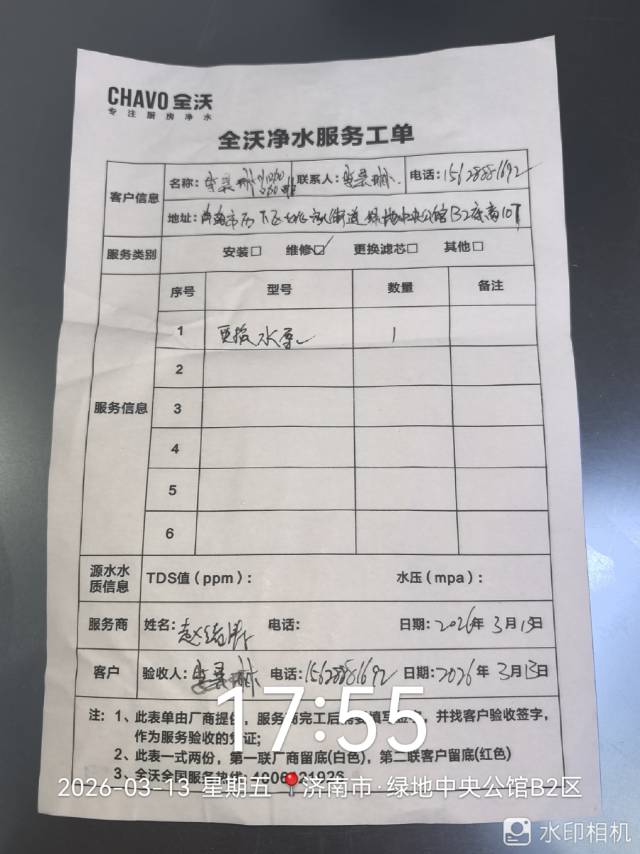 CHAVO 全沃
专注厨房净水
全沃净水服务工单
客户信息
名称: 联系人: 电话:
地址: 街道绿地中央公馆B2座
服务类别 安装□ 维修☑ 更换滤芯□ 其他□
服务信息
序号 型号 数量 备注
1 更换水泵 1
2
3
4
5
6
源水水质信息 TDS值(ppm): 水压(mpa):
服务商 姓名: 电话: 日期:2026年3月13日
客户 验收人: 电话: 日期:2026年3月13日
注: 1、此表单由厂商提供,服务商完工后 填写 ,并找客户验收签字,
作为服务验收的凭证;
2、此表一式两份,第一联厂商留底(白色),第二联客户留底(红色)
3、全沃全国服务热线
17:55
2026-03-13 星期五 济南市·绿地中央公馆B2区
水印相机